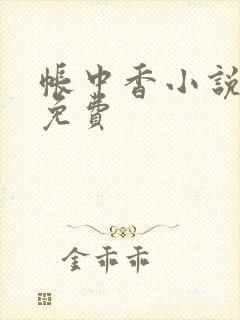 帳中香小說
免費
金乖乖